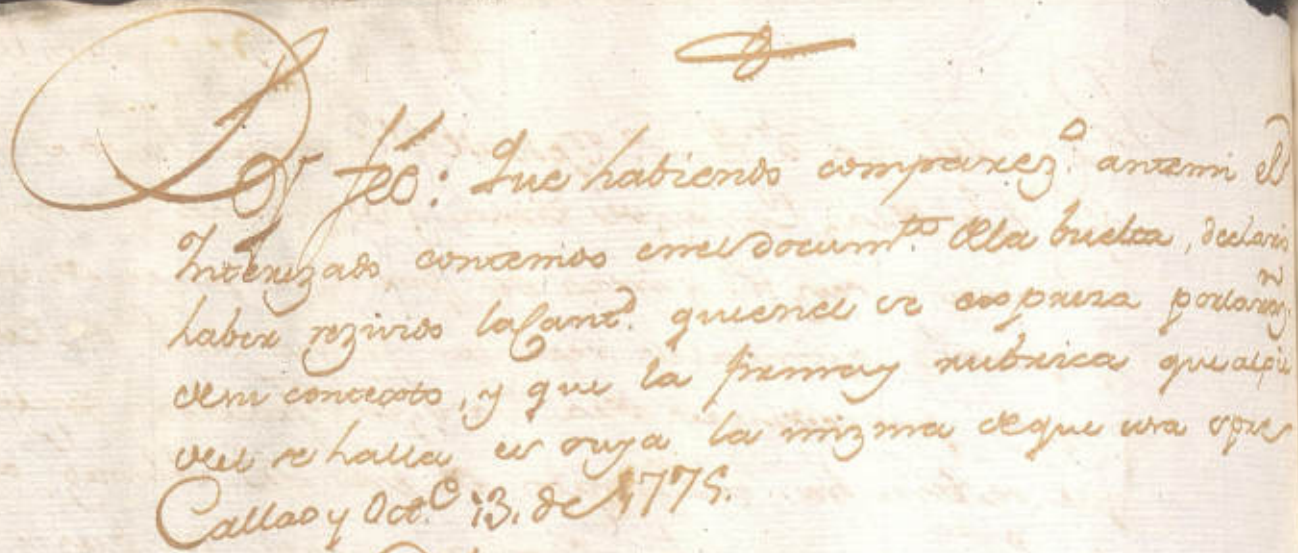 Doy feé: Que habiendo comparez.do antemi el
Interezado contenido en el docum.to dela buelta, declaró
haber rezivido la Cant.d que en el se expresa por la raz.n
de su contexto, y que la firma y rubrica que al pie
del se halla es suya la mizma de que usa
Callao y Oct.e 13. de 1775.